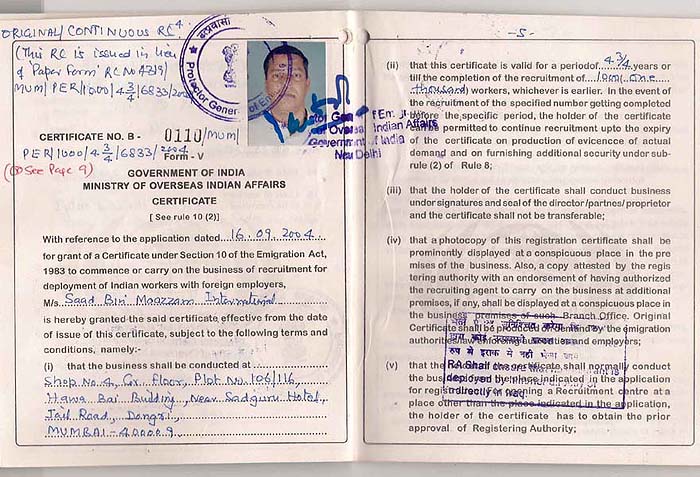 ORIGINAL/CONTINUOUS RC 4
(This RC is issued in lieu
of Paper Form RC No 4319/
MUM/PER/1000/4 3/4/6833/2004
Protector Gener
Government of India
New Delhi
CERTIFICATE NO. B - 0110/MUM/
PER/1000/4 3/4/6833/2004
Form - V
(See Page 9)
GOVERNMENT OF INDIA
MINISTRY OF OVERSEAS INDIAN AFFAIRS
CERTIFICATE
[ See rule 10 (2)]
With reference to the application dated 16.09.2004
for grant of a Certificate under Section 10 of the Emigration Act,
1983 to commence or carry on the business of recruitment for
deployment of Indian workers with foreign employers,
M/s Saad Bin Moazzam International
is hereby granted the said certificate, effective from the date
of issue of this certificate, subject to the following terms and
conditions, namely:-
(i) that the business shall be conducted at
Shop No. 4, Gr. Floor, Plot No. 106/116,
Hawa Bai Building, Near Sadguru Hotel,
Jail Road, Dongri,
MUMBAI - 400009
- 5 -
(ii) that this certificate is valid for a period of 4 3/4 years or
till the completion of the recruitment of 1000 (One
thousand) workers, whichever is earlier. In the event of
the recruitment of the specified number getting completed
before the specific period, the holder of the certificate
can be permitted to continue recruit upto the expiry
of the certificate on production of evicence of actual
demand and on furnishing additional security under sub-
rule (2) of Rule 8;
(iii) that the holder of the certificate shall conduct business
under signatures and seal of the director/partner/proprietor
and the certificate shall not be transferable;
(iv) that a photocopy of this registration certificate shall be
prominently displayed at a conspicuous place in the pre
mises of the business. Also, a copy attested by the regis
tering authority with an endorsement of having authorized
the recruiting agent to carry on the business at additional
premises, if any, shall be displayed at a conspicuous place in
the business premises of such Branch Office. Original
Certificate shall be produced on demand by the emigration
authorities/law enforcing authorities and employers;
(v) that the holder of the certificate shall normally conduct
the business at the place indicated in the application
for registration. For opening a Recruitment centre at a
place other than the place indicated in the application,
the holder of the certificate has to obtain the prior
approval of Registering Authority;
रूप से इराक में नहीं भेजा
RA Shall ensure that
deployed
directly in Iraq.